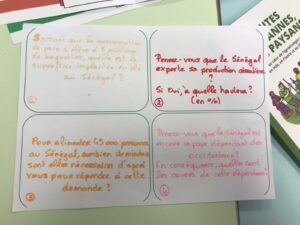 Sachant que la consommation
de pain s'élève à 8 millions
de baguettes, quelle est la
superficie implantée en blé
au Sénégal ?
①
Pensez-vous que le Sénégal
exporte sa production céréalière
?
Si oui, à quelle hauteur ?
(en %)
②
Pour alimenter 45 000 personnes
au Sénégal, combien de
sont-elles nécessaires d'après
vous pour répondre à cette
demande ?
③
Pensez-vous que le Sénégal est
encore un pays dépendant des
occidentaux ?
En conséquence, quelles sont
les causes de cette dépendance ?
④
ANNES
PAYSA